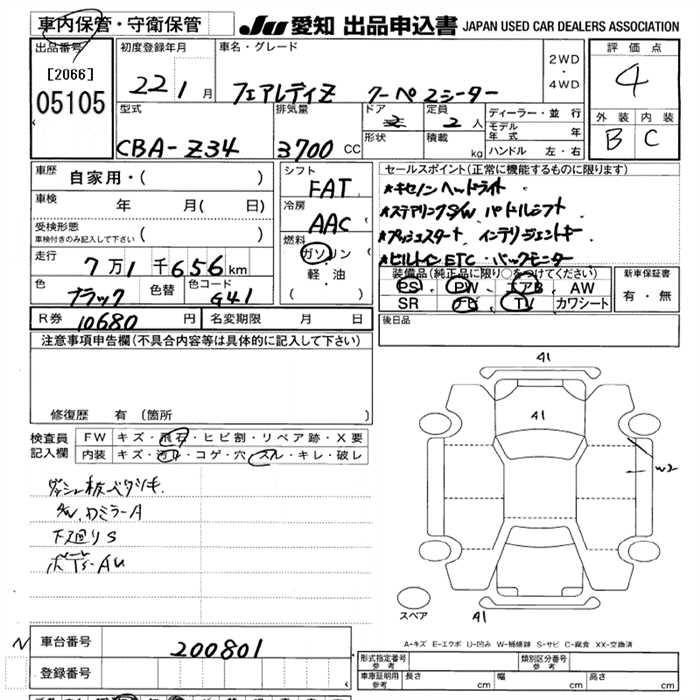 車内保管・守衛保管 JU 愛知 出品申込書 JAPAN USED CAR DEALERS ASSOCIATION
出品番号 [2066] 05105
初度登録年月 22 1 月
車名・グレード フェアレディZ クーペ 2シーター
2WD ・ 4WD
評価点 4
外装 内装
B C
型式 CBA-Z34
排気量 3700 CC
ドア 2
定員 2 人
形状
積載 kg
ディーラー・並行
モデル年式 年
ハンドル 左・右
車歴 自家用・( )
車検 年 月( 日)
受検形態 車検付きのみ記入して下さい ( )
走行 7万1千656km
色 ブラック 色替 色コード G41
シフト FAT
冷房 AAC
燃料 ガソリン 軽・油 ( )
セールスポイント(正常に機能するものに限ります)
★キセノンヘッドライト
★ステアリングS/W パドルシフト
★プッシュスタート インテリジェントキー
★ビルトインETC・バックモニター
装備品(純正品に限り○をつけてください)
PS PW エアB AW
SR ナビ TV カワシート
新車保証書 有・無
後日品
R券 10680 円 名変期限 月 日
注意事項申告欄(不具合内容等は具体的に記入して下さい)
修復歴 有(箇所 )
検査員記入欄
FW キズ・飛石・ヒビ割・リペア跡・X要
内装 キズ・汚れ・コゲ・穴・スレ・キレ・破レ
ダッシュ板ベタツキ
S/W,ルームミラーA
下廻りS
41
41
W2
41
スペア
A-キズ E-エクボ U-凹み W-補修跡 S-サビ C-腐食 XX-交換済
N 車台番号 200801
登録番号
形式指定番号 参考
類別区分番号 参考
車庫証明用 参考 長さ cm 幅 cm 高さ cm